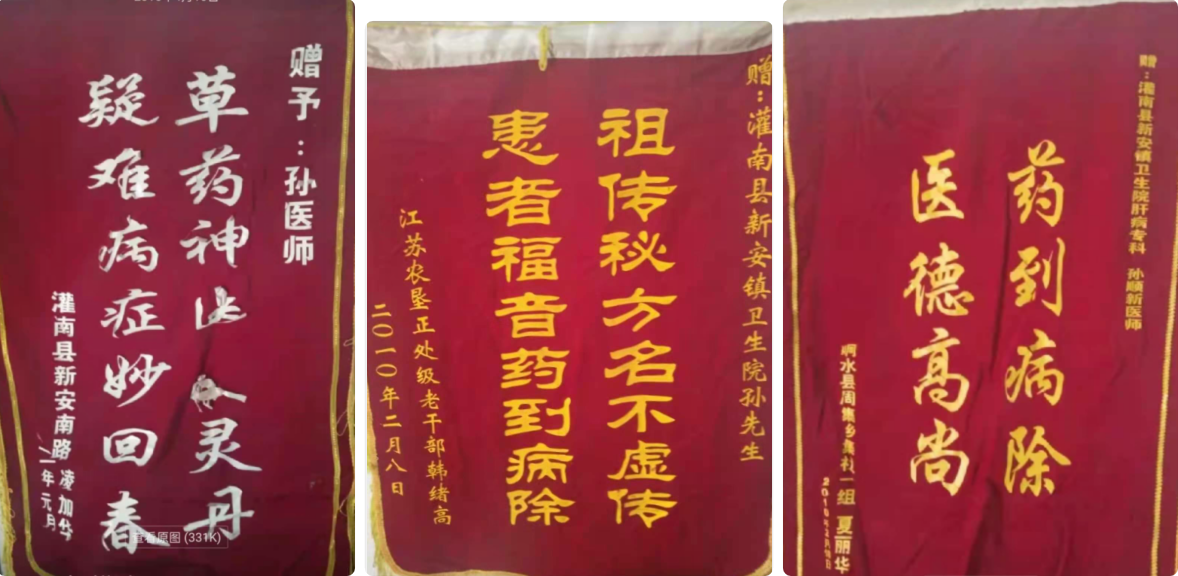 赠予：孙医师
草药神医灵丹
疑难病症妙回春
灌南县新安南路
凌加华
年元月
查看原图 (331K)
赠：灌南县新安镇卫生院孙先生
祖传秘方名不虚传
患者福音药到病除
江苏农垦正处级老干部韩绪高
二〇一〇年二月八日
赠：灌南县新安镇卫生院肝病专科 孙顺新医师
药到病除
医德高尚
响水县周集乡集社一组 夏丽华